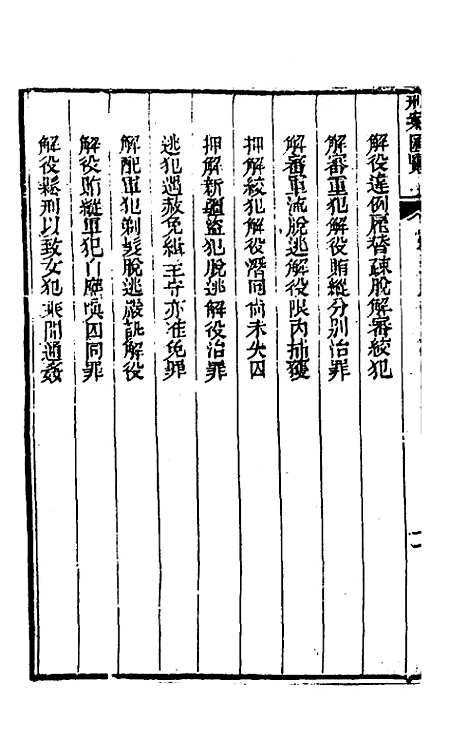 刑案匯覽
解役違例雇替疎脫解審絞犯
解審重犯解役賄縱分別治罪
解審軍流脫逃解役限內捕獲
押解絞犯解役潛回尚未失囚
押解新疆盜犯脫逃解役治罪
逃犯遇赦免緝主守亦准免罪
解配軍犯剃髮脫逃嚴訊解役
解役賄縱軍犯自應與囚同罪
解役鬆刑以致女犯乘間通姦